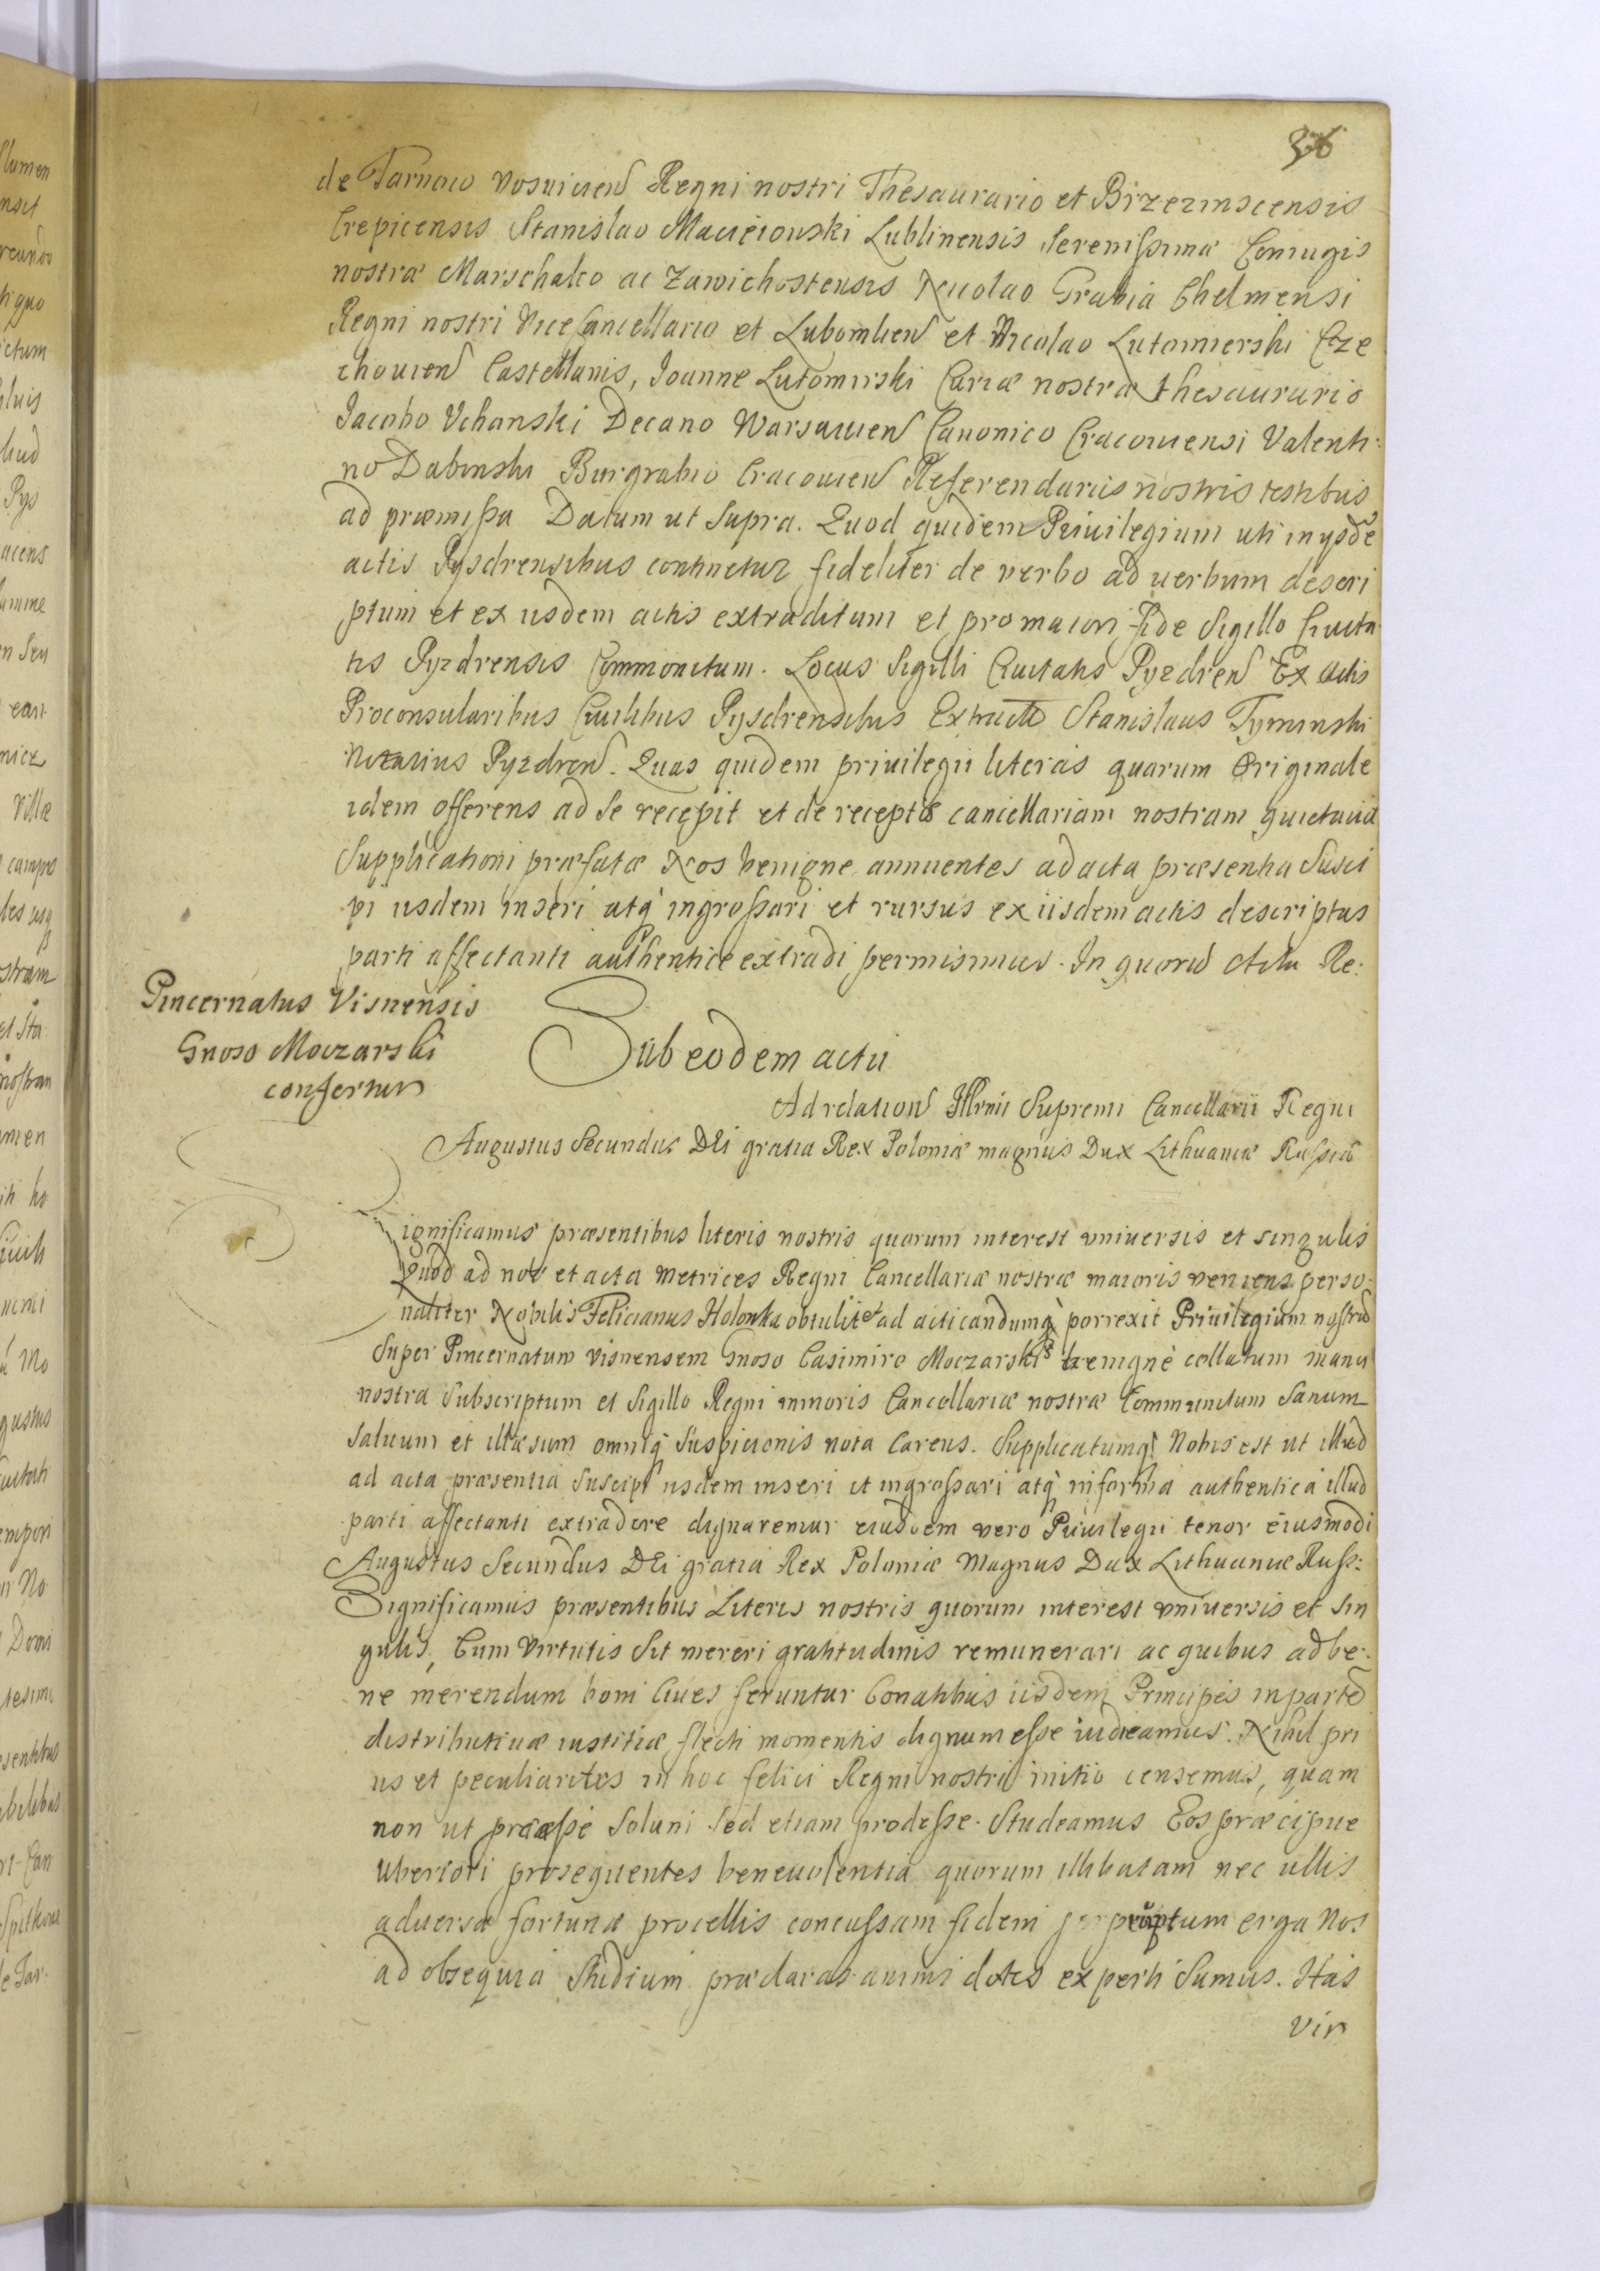 36
de Tarnow Voyniceñ Regni nostri Thesaurario et Brzezinscensis
Crepicensis Stanislao Macieiouski Lublinensis Serenissimæ Coniugis
nostræ Marschalco ac Zawichostensis Nicolao Grabia Chelmensi
Regni nostri Vice Cancellario et Lubomlieñ et Nicolao Lutomierski Cze
chouieñ Castellanis, Joanne Lutomirski Curiæ nostræ thesaurario
Jacobo Vchanski Decano Warsauieñ Canonico Cracouiensi Valenti:
no Dabinski Burgrabio Cracouieñ Referendariis nostris testibus
ad præmissa Datum ut Supra. Quod quidem Priuilegium uti in ysdē
actis Pysdrensibus continetur fideliter de verbo ad uerbum descri
ptum et ex iisdem actis extraditum et pro maiori fide Sigillo Ciuita
tis Pyzdrensis Commonitum. Locus Sigilli Ciuitatis Pyzdreñ Ex Actis
Proconsularibus Ciuilibus Pysdrensibus Extract Stanislaus Tyminski
Notarius Pyzdreñ. Quas quidem priuilegii literas quarum Originale
idem offerens ad Se recepit et de receptis cancellariam nostram quietauit
Supplicationi præfatæ Nos benigne annuentes ad acta præsentia Susci
pi iisdem inseri atq̃ ingrossari et rursus ex iisdem actis descriptas
parti affectanti authentice extradi permisimus. In quorũ Acta Re:
Pincernatus Visnensis
Gnoso Moczarski
confertur
Sub eodem actu
Ad relationẽ Illrmi Supremi Cancellarii Regni
Augustus Secundus DEi gratia Rex Poloniæ magnus Dux Lithuaniæ Russiæ
Significamus præsentibus literis nostris quorum interest vniuersis et singulis
Quod ad nos et acta Metrices Regni Cancellariæ nostræ maioris veniens perso:
naliter Nobilis Felicianus Holonka obtulit et ad acticandumq̃ porrexit Priuilegium nostrũ
Super Pincernatum visnensem Gnoso Casimiro Moczarski benignè collatum manu
nostra Subscriptum et Sigillo Regni minoris Cancellariæ nostræ Communitum Sanum
Saluum et illæsum omniq̃ Suspicionis nota Carens. Supplicatumq̃ Nobis est ut illud
ad acta præsentia Suscipi iisdem inseri et ingrossari atq̃ in forma authentica illud
parti affectanti extradere dignaremur eiusdem vero Priuilegii tenor eiusmodi
Augustus Secundus DEi gratia Rex Poloniæ Magnus Dux Lithuaniæ Russ:
Significamus præsentibus Literis nostris quorum interest vniuersis et Sin
gulis, Cum virtutis Sit mereri gratitudinis remunerari ac quibus ad be:
ne merendum boni Ciues feruntur Conatibus iisdem Principes in partē
distributiuæ iustitiæ flecti momentis dignum esse iudicamus. Nihil pri
us et peculiarites in hoc felici Regni nostri initio censemus, quam
non ut præesse Solum Sed etiam prodesse Studeamus Eos præcipue
Vberiori prosequentes beneuolentia quorum illibatam nec ullis
aduersæ fortunæ procellis concussam fidem promptum erga Nos
ad obsequia Studium præclaras animi dotes experti Sumus. Has
Vir